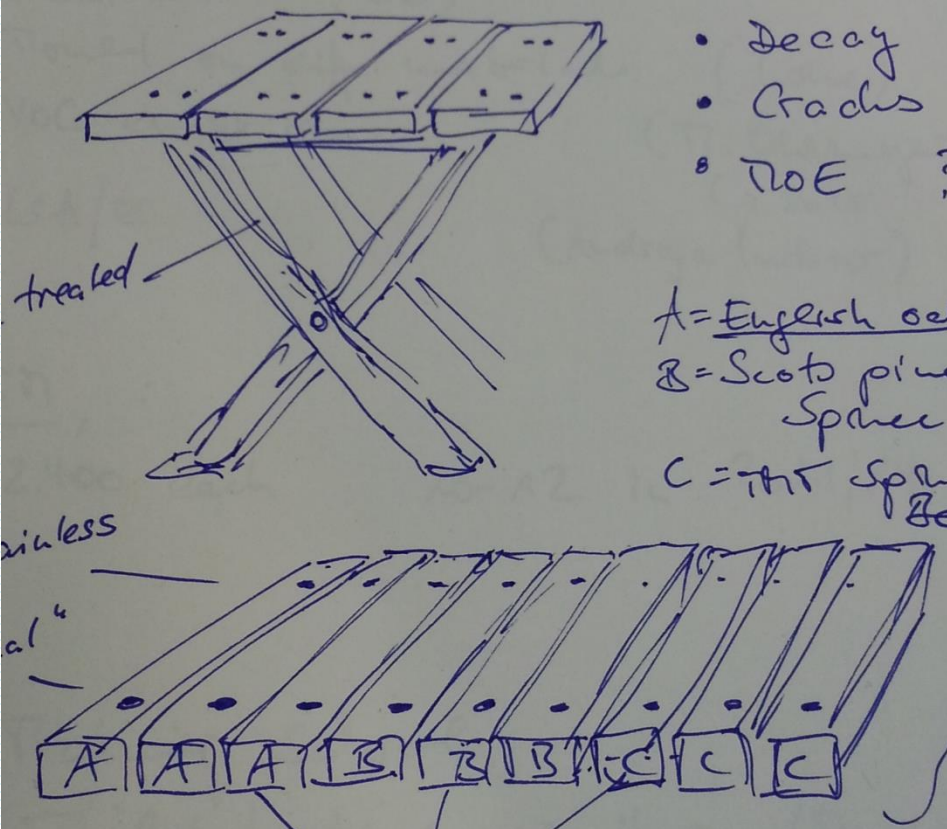 • Decay
• Cracks
• MOE ?
treated
A = English oa
B = Scots pine
Spruce
C = TMT Spru
Be
ainless
al"
A A A B B B C C C